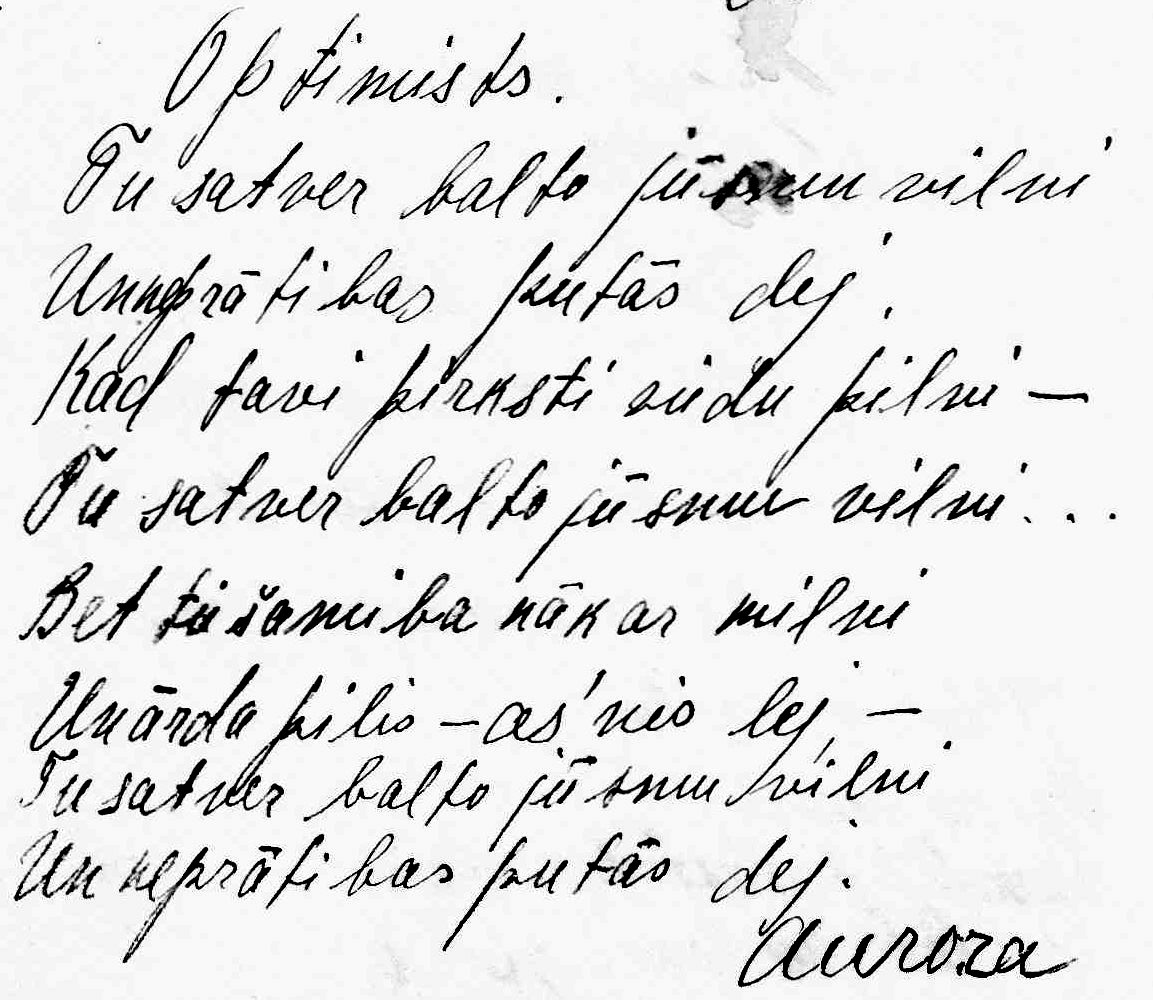 Optimists.
Tu satver balto jūsmu vilni
Un neprātības putās dej.
Kad tavi pirksti sūdu pilni –
Tu satver balto jūsmu vilni...
Bet tūšamiba nāk ar milni
Un ārda pilis – as'nis lej, –
Tu satver balto jūsmu vilni
Un neprātības putās dej.
Auroza